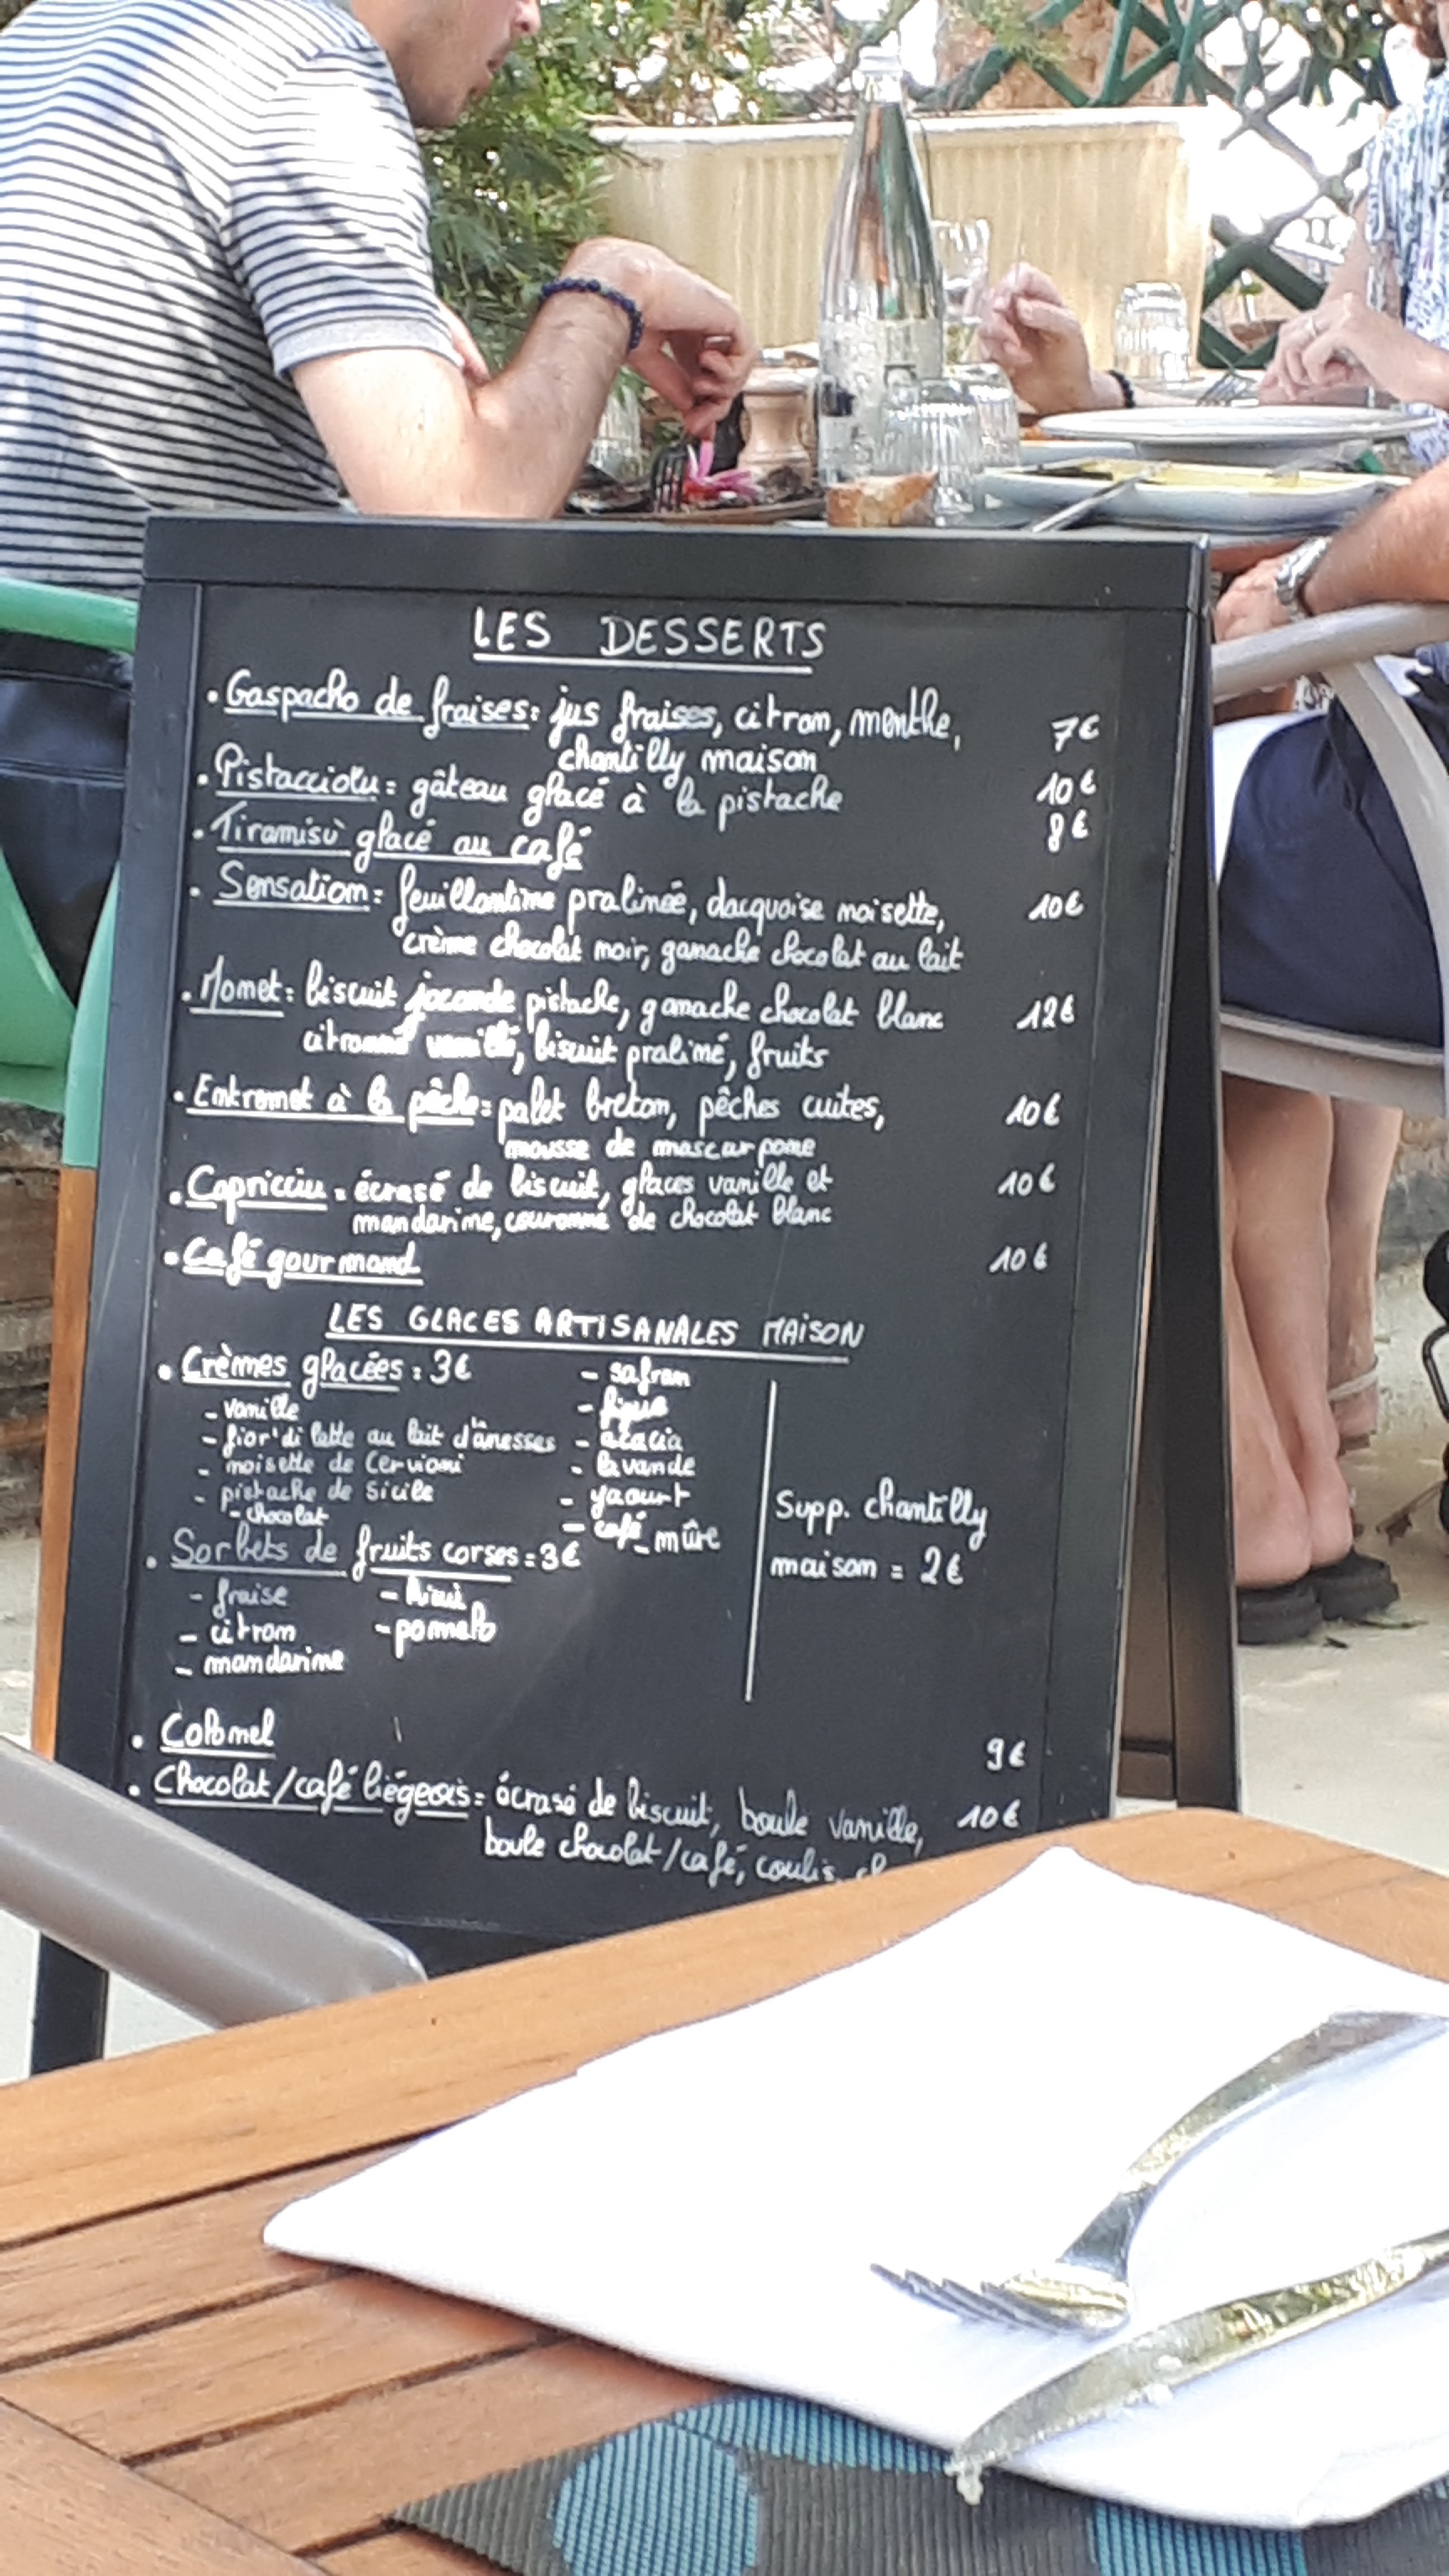 LES DESSERTS
• Gaspacho de fraises: jus fraises, citron, menthe, 7€
chantilly maison
• Pistacciolu = gâteau glacé à la pistache 10€
• Tiramisù glacé au café 8€
• Sensation = feuillantine pralinée, dacquoise noisette, 10€
crème chocolat noir, ganache chocolat au lait
• Momet = biscuit joconde pistache, ganache chocolat blanc 12€
citronné vanillé, biscuit praliné, fruits
• Entremet à la pêche = palet breton, pêches cuites, 10€
mousse de mascarpone
• Capricciu = écrasé de biscuit, glaces vanille et 10€
mandarine, couronne de chocolat blanc
• Café gourmand 10€
LES GLACES ARTISANALES MAISON
• Crèmes glacées = 3€
- vanille
- fior'di latte au lait d'ânesses
- noisette de Cervioni
- pistache de Sicile
- chocolat
- safran
- figue
- acacia
- lavande
- yaourt
- café - mûre
• Sorbets de fruits corses = 3€
- fraise
- citron
- mandarine
- kiwi
- pomelo
Supp. chantilly
maison = 2€
• Colonel 9€
• Chocolat/café liégeois = écrasé de biscuit, boule vanille, 10€
boule chocolat/café, coulis,